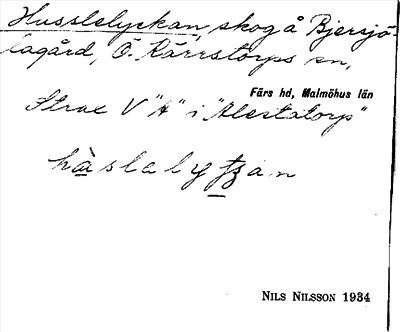 Husslelyckan, skog å Bjersjö-
lagård, Ö. Kärrstorps sn,
Färs hd, Malmöhus län
Strax V "A" i "Alestatorp"
hàslalyꞇʒan
NILS NILSSON 1934